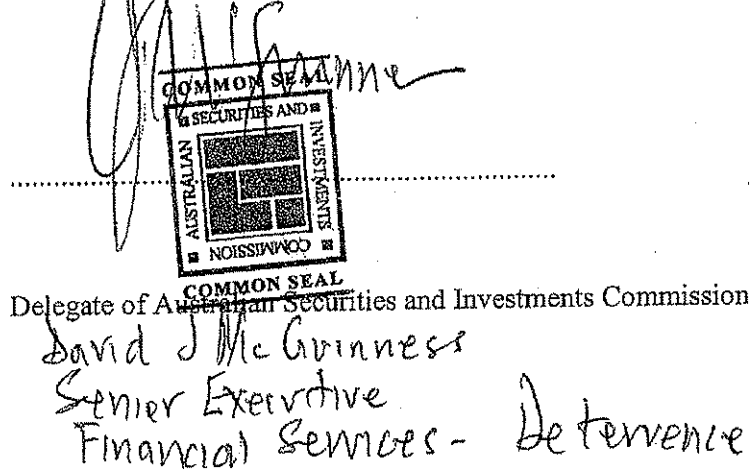 COMMON SEAL
SECURITIES AND
AUSTRALIAN
INVESTMENTS
COMMISSION
COMMON SEAL
Delegate of Australian Securities and Investments Commission
David J McGuinness
Senior Executive
Financial Services - Deterrence